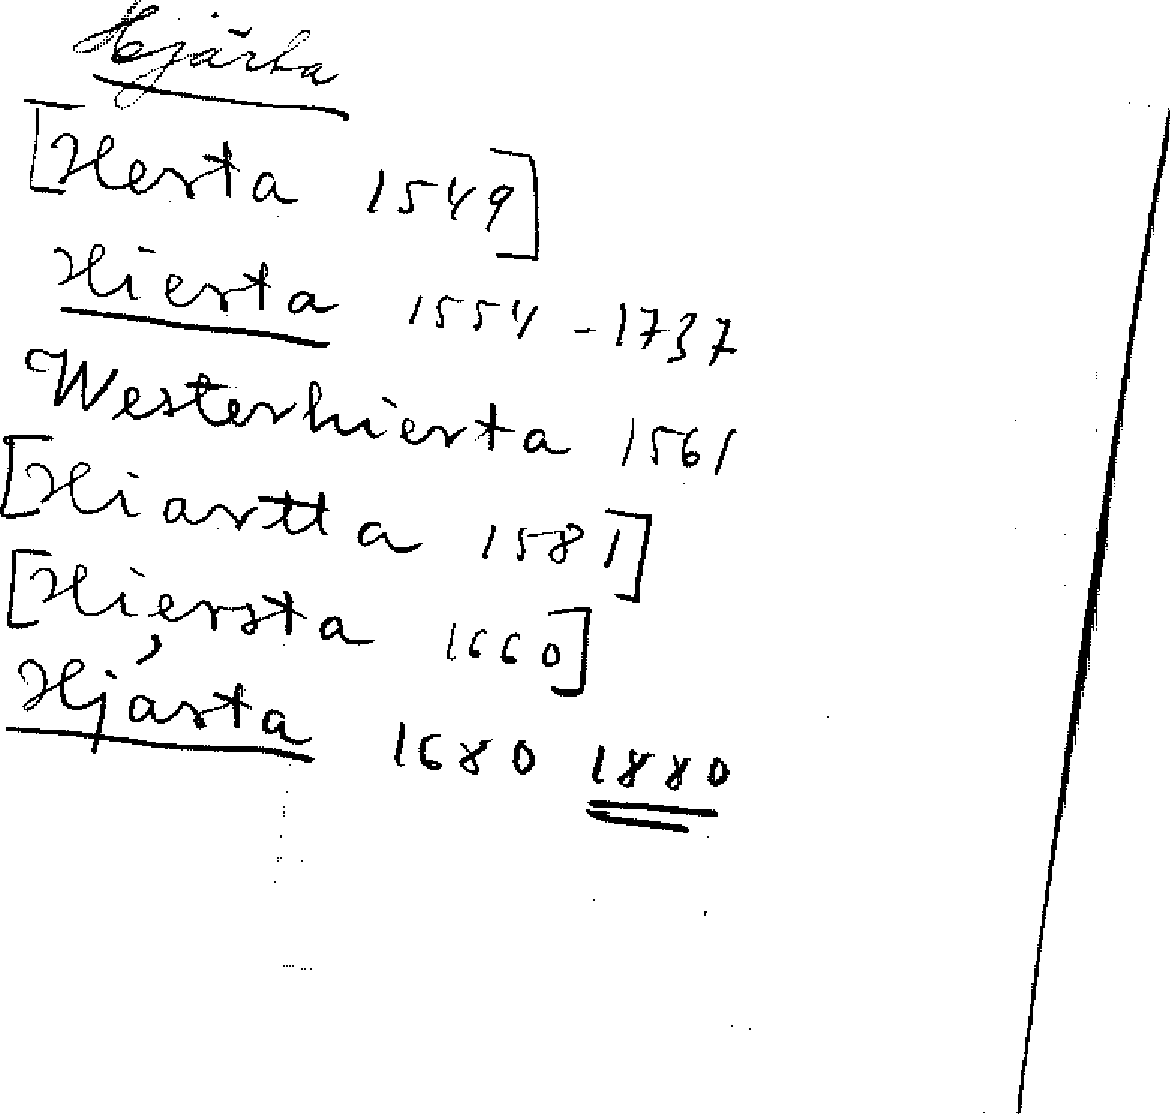 Hjärta
[Herta 1549]
Hierta 1554 - 1737
Westerhierta 1561
[Hiartta 1581]
[Hiersta 1660]
Hjärta 1680 1880